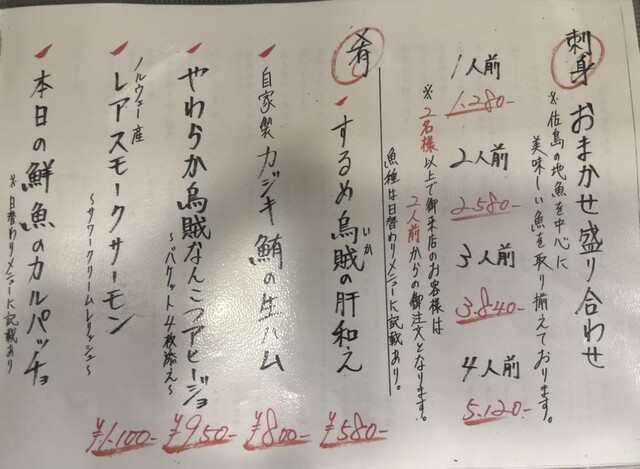 刺身 おまかせ盛り合わせ
※佐島の地魚を中心に
美味しい魚を取り揃えております。
1人前 1.280-
2人前 2580-
3人前 3.840-
4人前 5.120-
※2名様以上で御来店のお客様は
2人前からの御注文となります。
魚種は日替わりメニューに記載あり。
肴
するめ烏賊の肝和え ¥580-
いか
自家製 カジキ鮪の生ハム ¥800-
やわらか烏賊なんこつアヒージョ ¥950-
~バケット4枚添え~
ノルウェー産
レアスモークサーモン ¥1.100-
~サワークリームレリッシュ~
本日の鮮魚のカルパッチョ
※日替わりメニューに記載あり